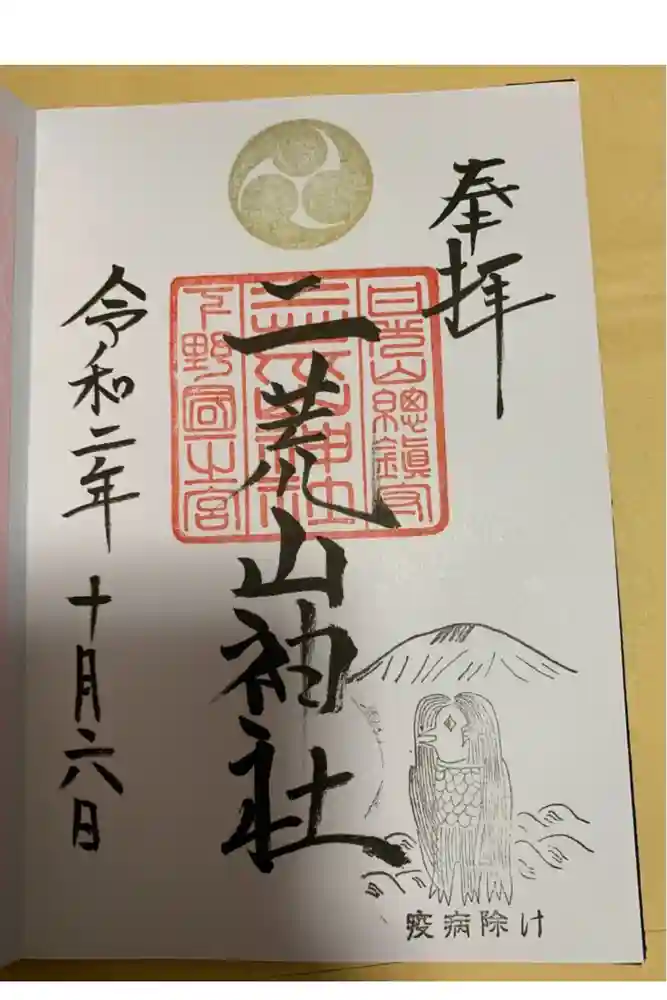 奉拝
日光山總鎮守
二荒山神社
下野國一宮
令和二年十月六日
疫病除け